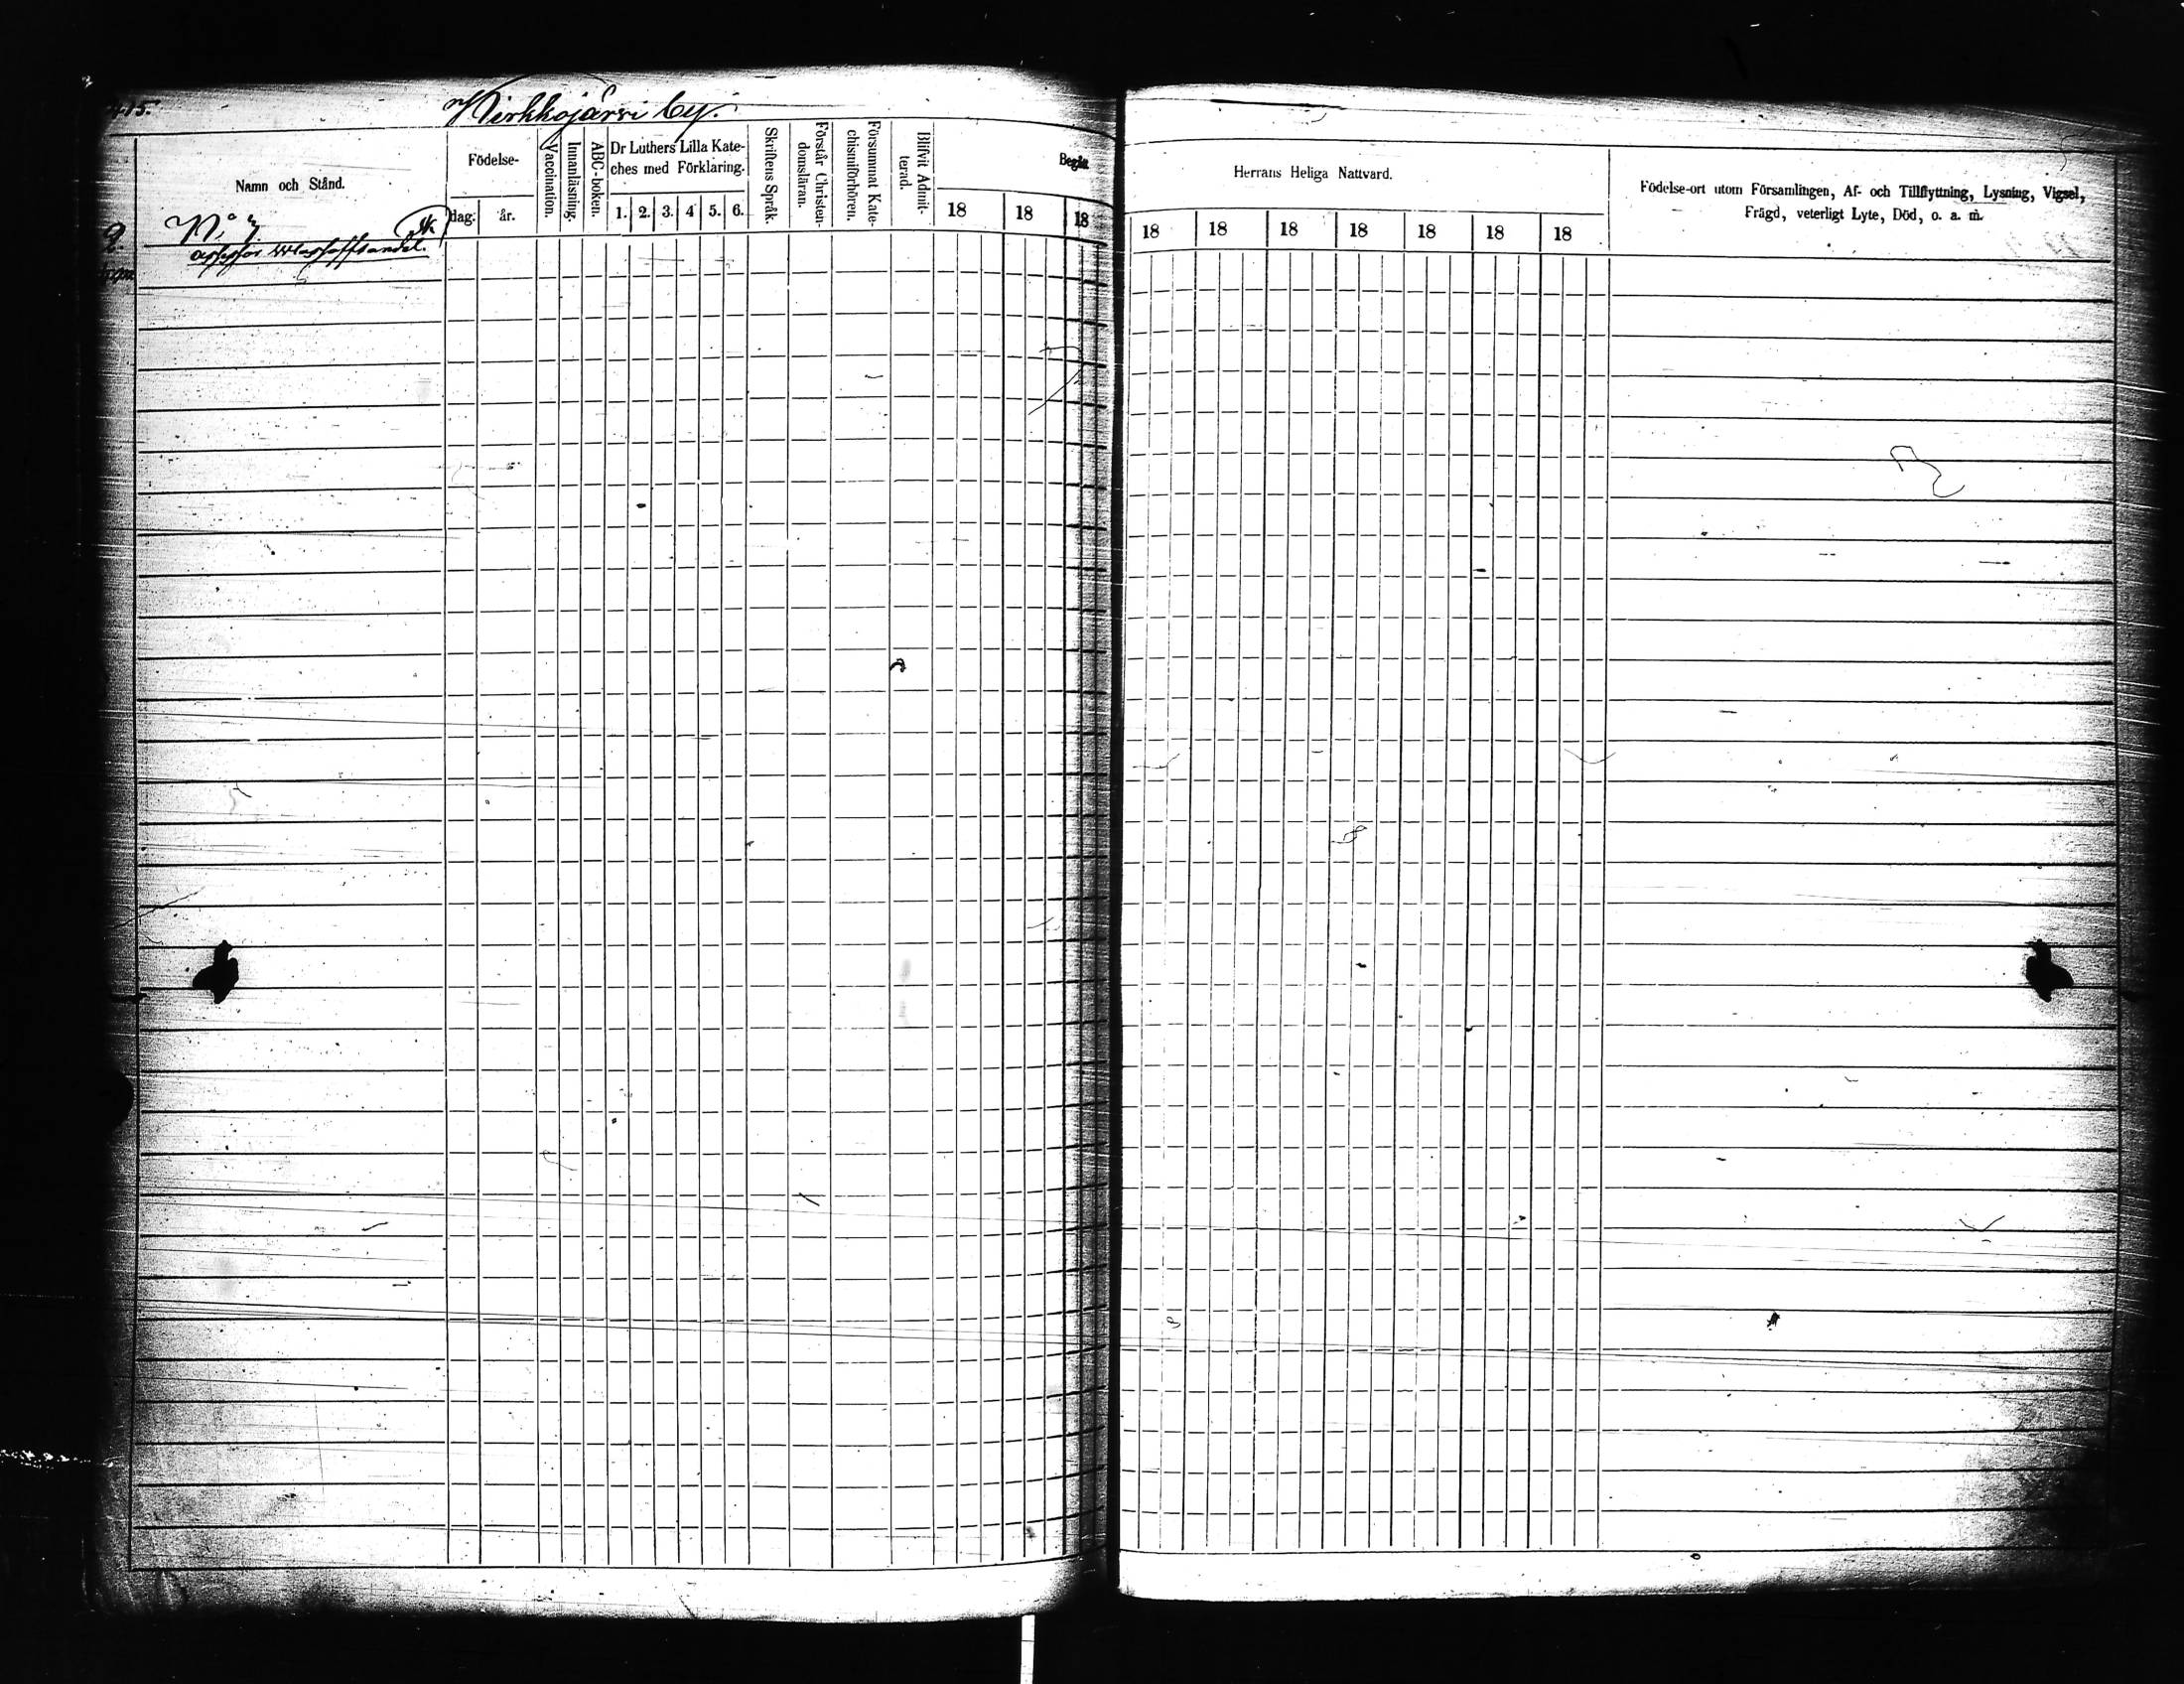 Kirkkojärvi by.
Namn och Stånd.
Födelse-
dag.
år.
Vaccination.
Innanläsning.
ABC-boken.
Dr Luthers Lilla Kate-
ches med Förklaring.
1. 2. 3. 4 5. 6.
Skriftens Språk.
Förstår Christen-
domsläran.
Försummat Kate-
chismiförhören.
Blifvit Admit-
terad.
Begått
18 18 18
Herrans Heliga Nattvard.
18 18 18 18 18 18 18
Födelse-ort utom Församlingen, Af- och Tillflyttning, Lysning, Vigsel,
Frägd, veterligt Lyte, Död, o. a. m.